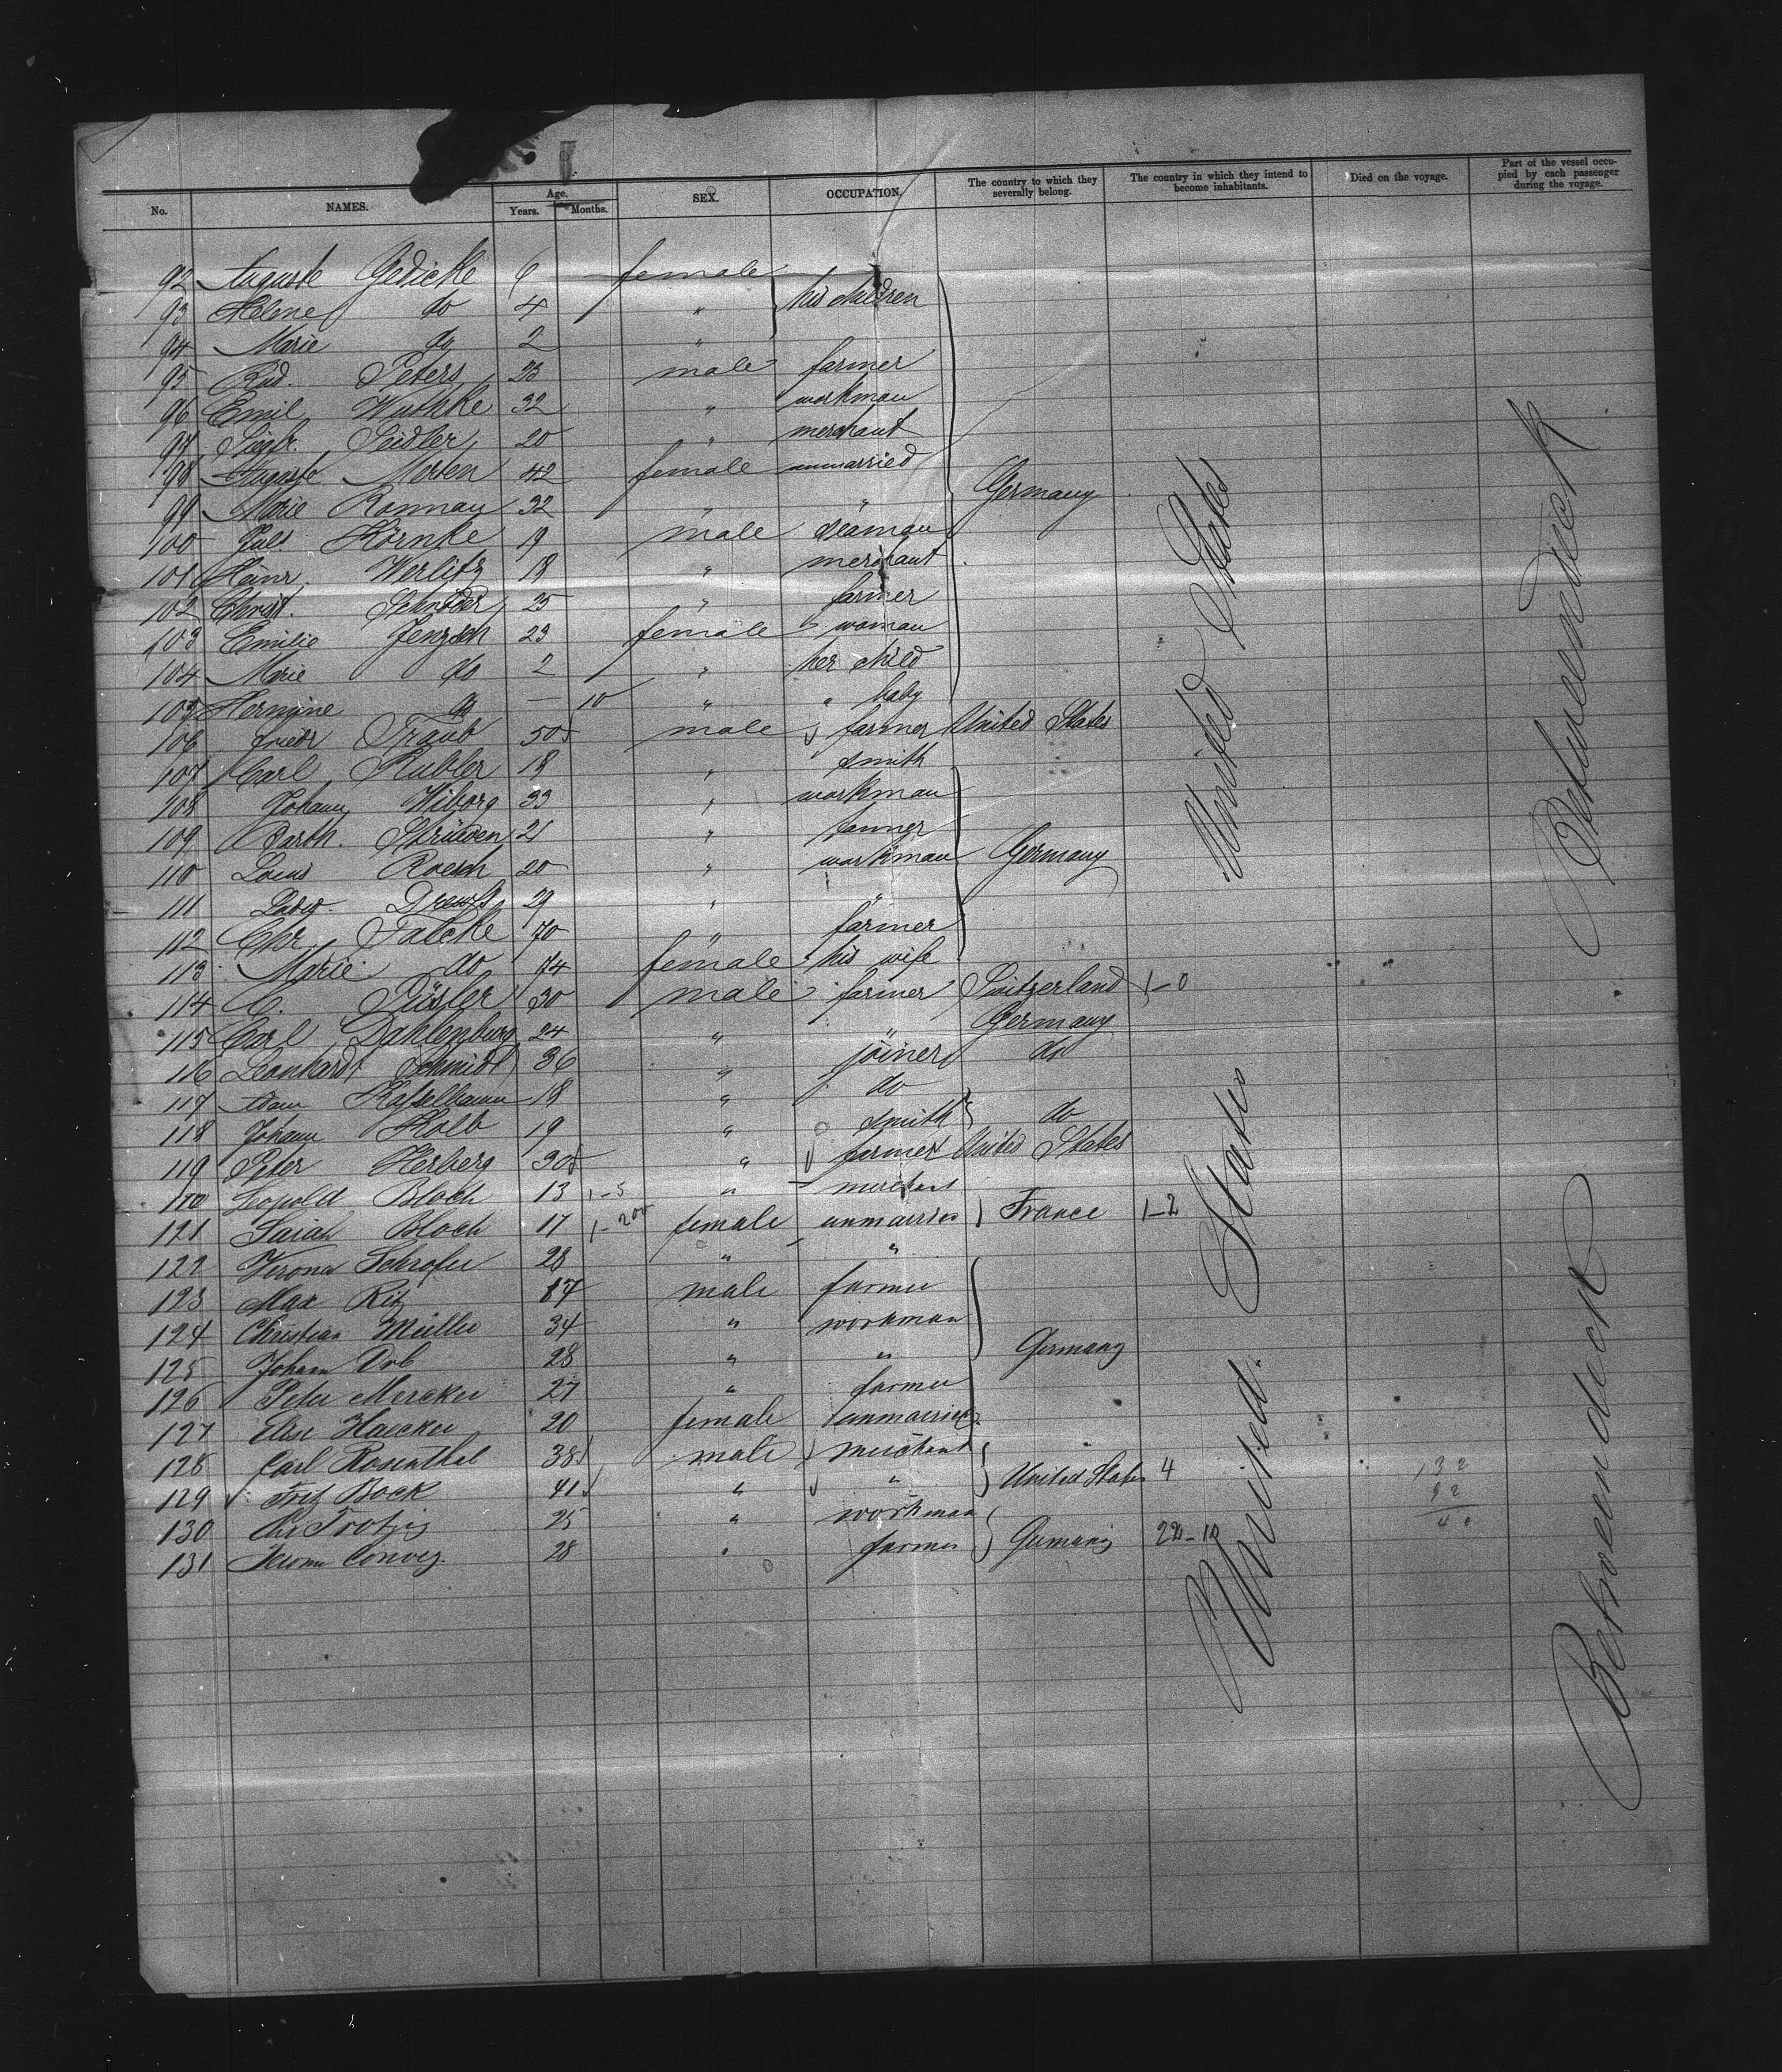 No. NAMES. Age. Years. Months. SEX. OCCUPATION. The country to which they severally belong. The country in which they intend to become inhabitants. Died on the voyage. Part of the vessel occupied by each passenger during the voyage.
92 Auguste Gedicke 6 female
93 Helene do 4 " his children
94 Marie do 2 "
95 Rud. Peters 23 male farmer
96 Emil Wuthke 32 " workman
97 Siegfr. Seidler 20 " merchant
98 Auguste Mersen 42 female unmarried
99 Marie Ronnau 32 " " Germany
100 Jul. Körnke 19 male seaman
101 Heinr. Werlitz 18 " merchant
102 Christ. Schröder 25 " farmer
103 Emilie Jenzsch 23 female woman
104 Marie do 2 " her child
105 Hermine do — 10 " " baby
106 Friedr Traub 50 male farmer United States
107 Carl Kubler 18 " smith
108 Johann Wiborg 33 " workman
109 Barth. Strüwen 21 " tanner
110 Louis Roesch 20 " workman Germany
111 Ludw. Drews 29 " "
112 Chr. Fatcke 70 " farmer
113 Marie do 74 female his wife
114 C. Süsler 30 male farmer Switzerland 1-0
115 Carl Dahlenburg 24 " " Germany
116 Leonhardt Schmidt 36 " joiner do
117 Adam Kasselbaum 18 " do
118 Johann Kolb 19 " smith do
119 Peter Herberg 30 " farmer United States
120 Leopold Bloch 13 1-5 " merchant
121 Sarah Bloch 17 1-200 female unmarried France 1-2
122 Verona Schrofer 28 " "
123 Max Ritz 17 male farmer
124 Christian Müller 34 " workman
125 Johann Orb 28 " " Germany
126 Peter Mercker 27 " farmer
127 Elise Haecker 20 female unmarried
128 Carl Rosenthal 38 male merchant
129 Fritz Bock 41 " " United States 4
130 Chr Trotzig 25 " workman
131 28 " farmer Germany
United States
United States
Betweendeck
Betweendeck
132
92
40